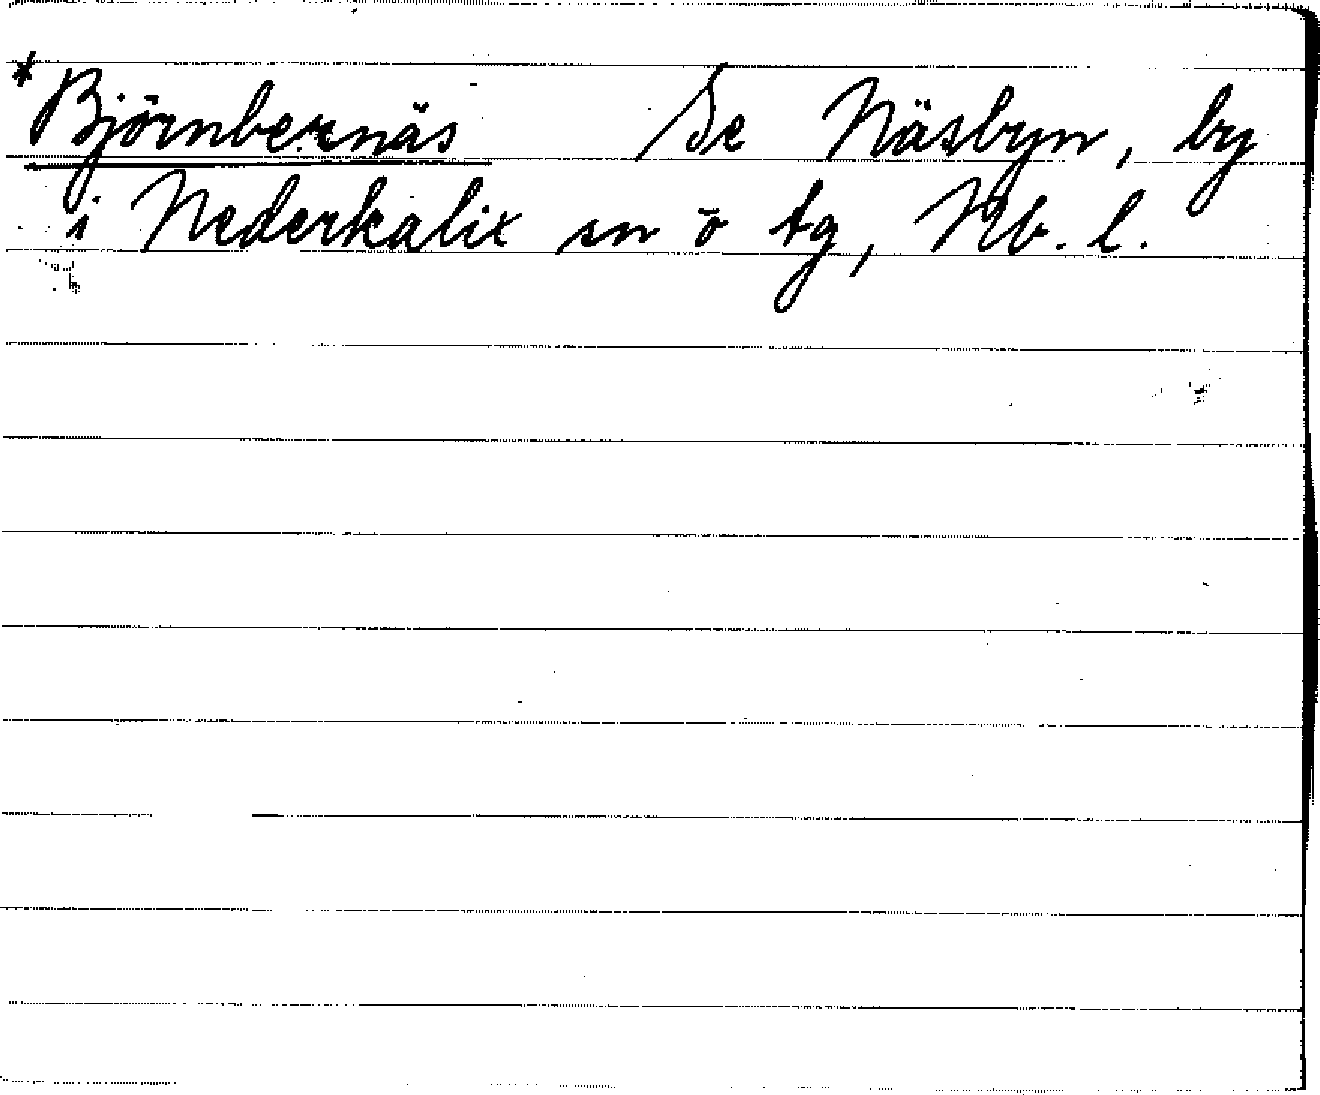 *Björnbernäs Se Näsbyn, by
i Nederkalix sn o tg, Nb. l.